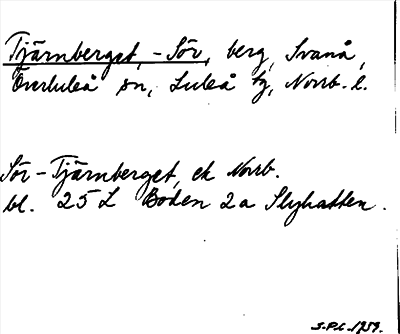 Tjärnberget, -Sör, berg, Svanå,
Överluleå sn, Luleå tg, Norrb. l.
Sör-Tjärnberget, ek Norrb.
bl. 25 L Boden 2a Slyhatten.
S.P.L. 1959.